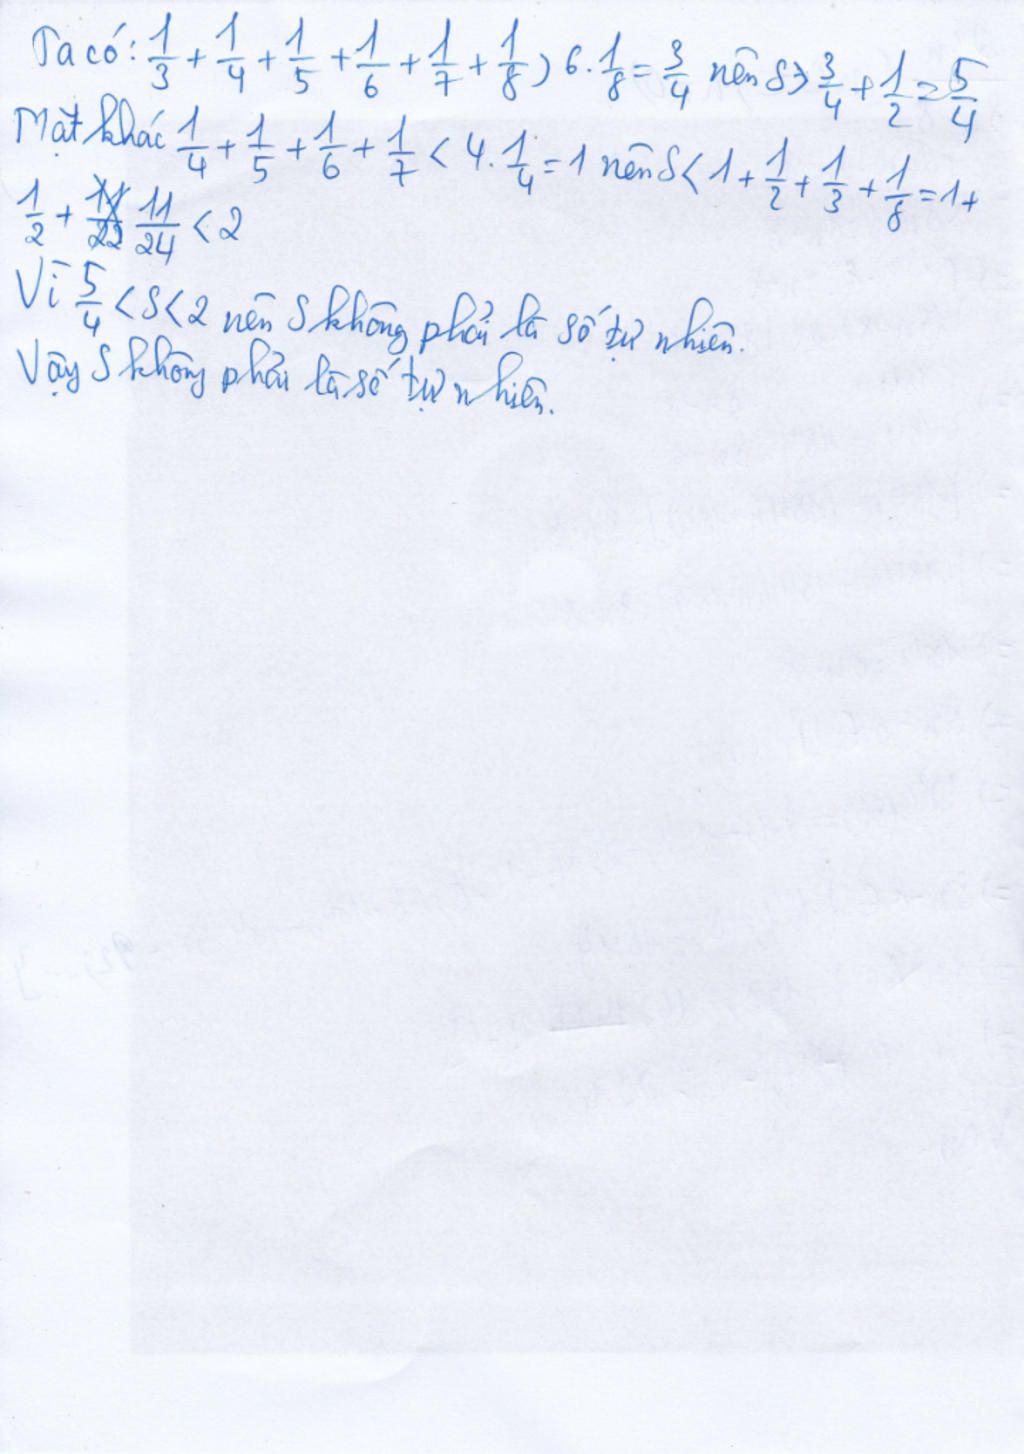 Ta có: 1/3 + 1/4 + 1/5 + 1/6 + 1/7 + 1/8 > 6 . 1/8 = 3/4 nên S > 3/4 + 1/2 = 5/4
Mặt khác 1/4 + 1/5 + 1/6 + 1/7 < 4 . 1/4 = 1 nên S < 1 + 1/2 + 1/3 + 1/8 = 1 +
1/2 + 11/24 < 2
Vì 5/4 < S < 2 nên S không phải là số tự nhiên.
Vậy S không phải là số tự nhiên.